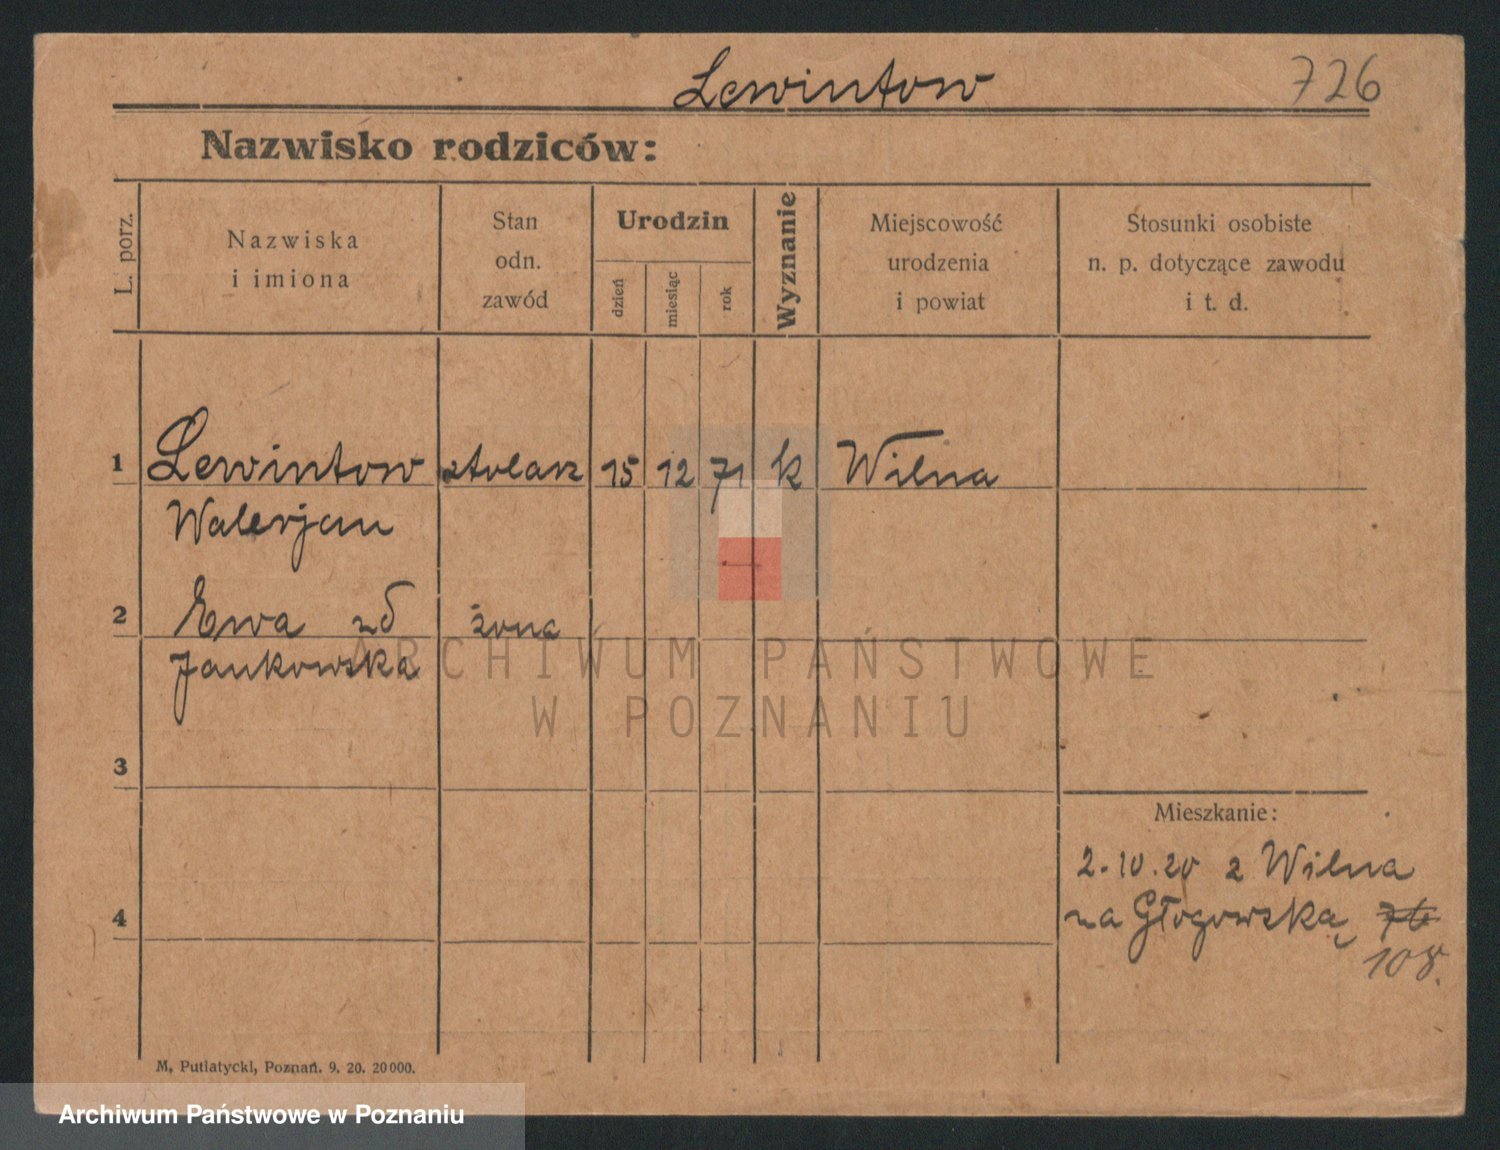 Lewintow 726
Nazwisko rodziców:
L. porz.
Nazwiska
i imiona
Stan
odn.
zawód
Urodzin
dzień
miesiąc
rok
Wyznanie
Miejscowość
urodzenia
i powiat
Stosunki osobiste
n. p. dotyczące zawodu
i t. d.
1 Lewintow stolarz 15 12 71 k Wilna
Walerjan
2 Ewa zd żona
Jankowska
ARCHIWUM PAŃSTWOWE
W POZNANIU
3
Mieszkanie:
2.10.20 z Wilna
4 na Głogowską
108.
M. Putiatycki, Poznań. 9. 20. 20000.
Archiwum Państwowe w Poznaniu